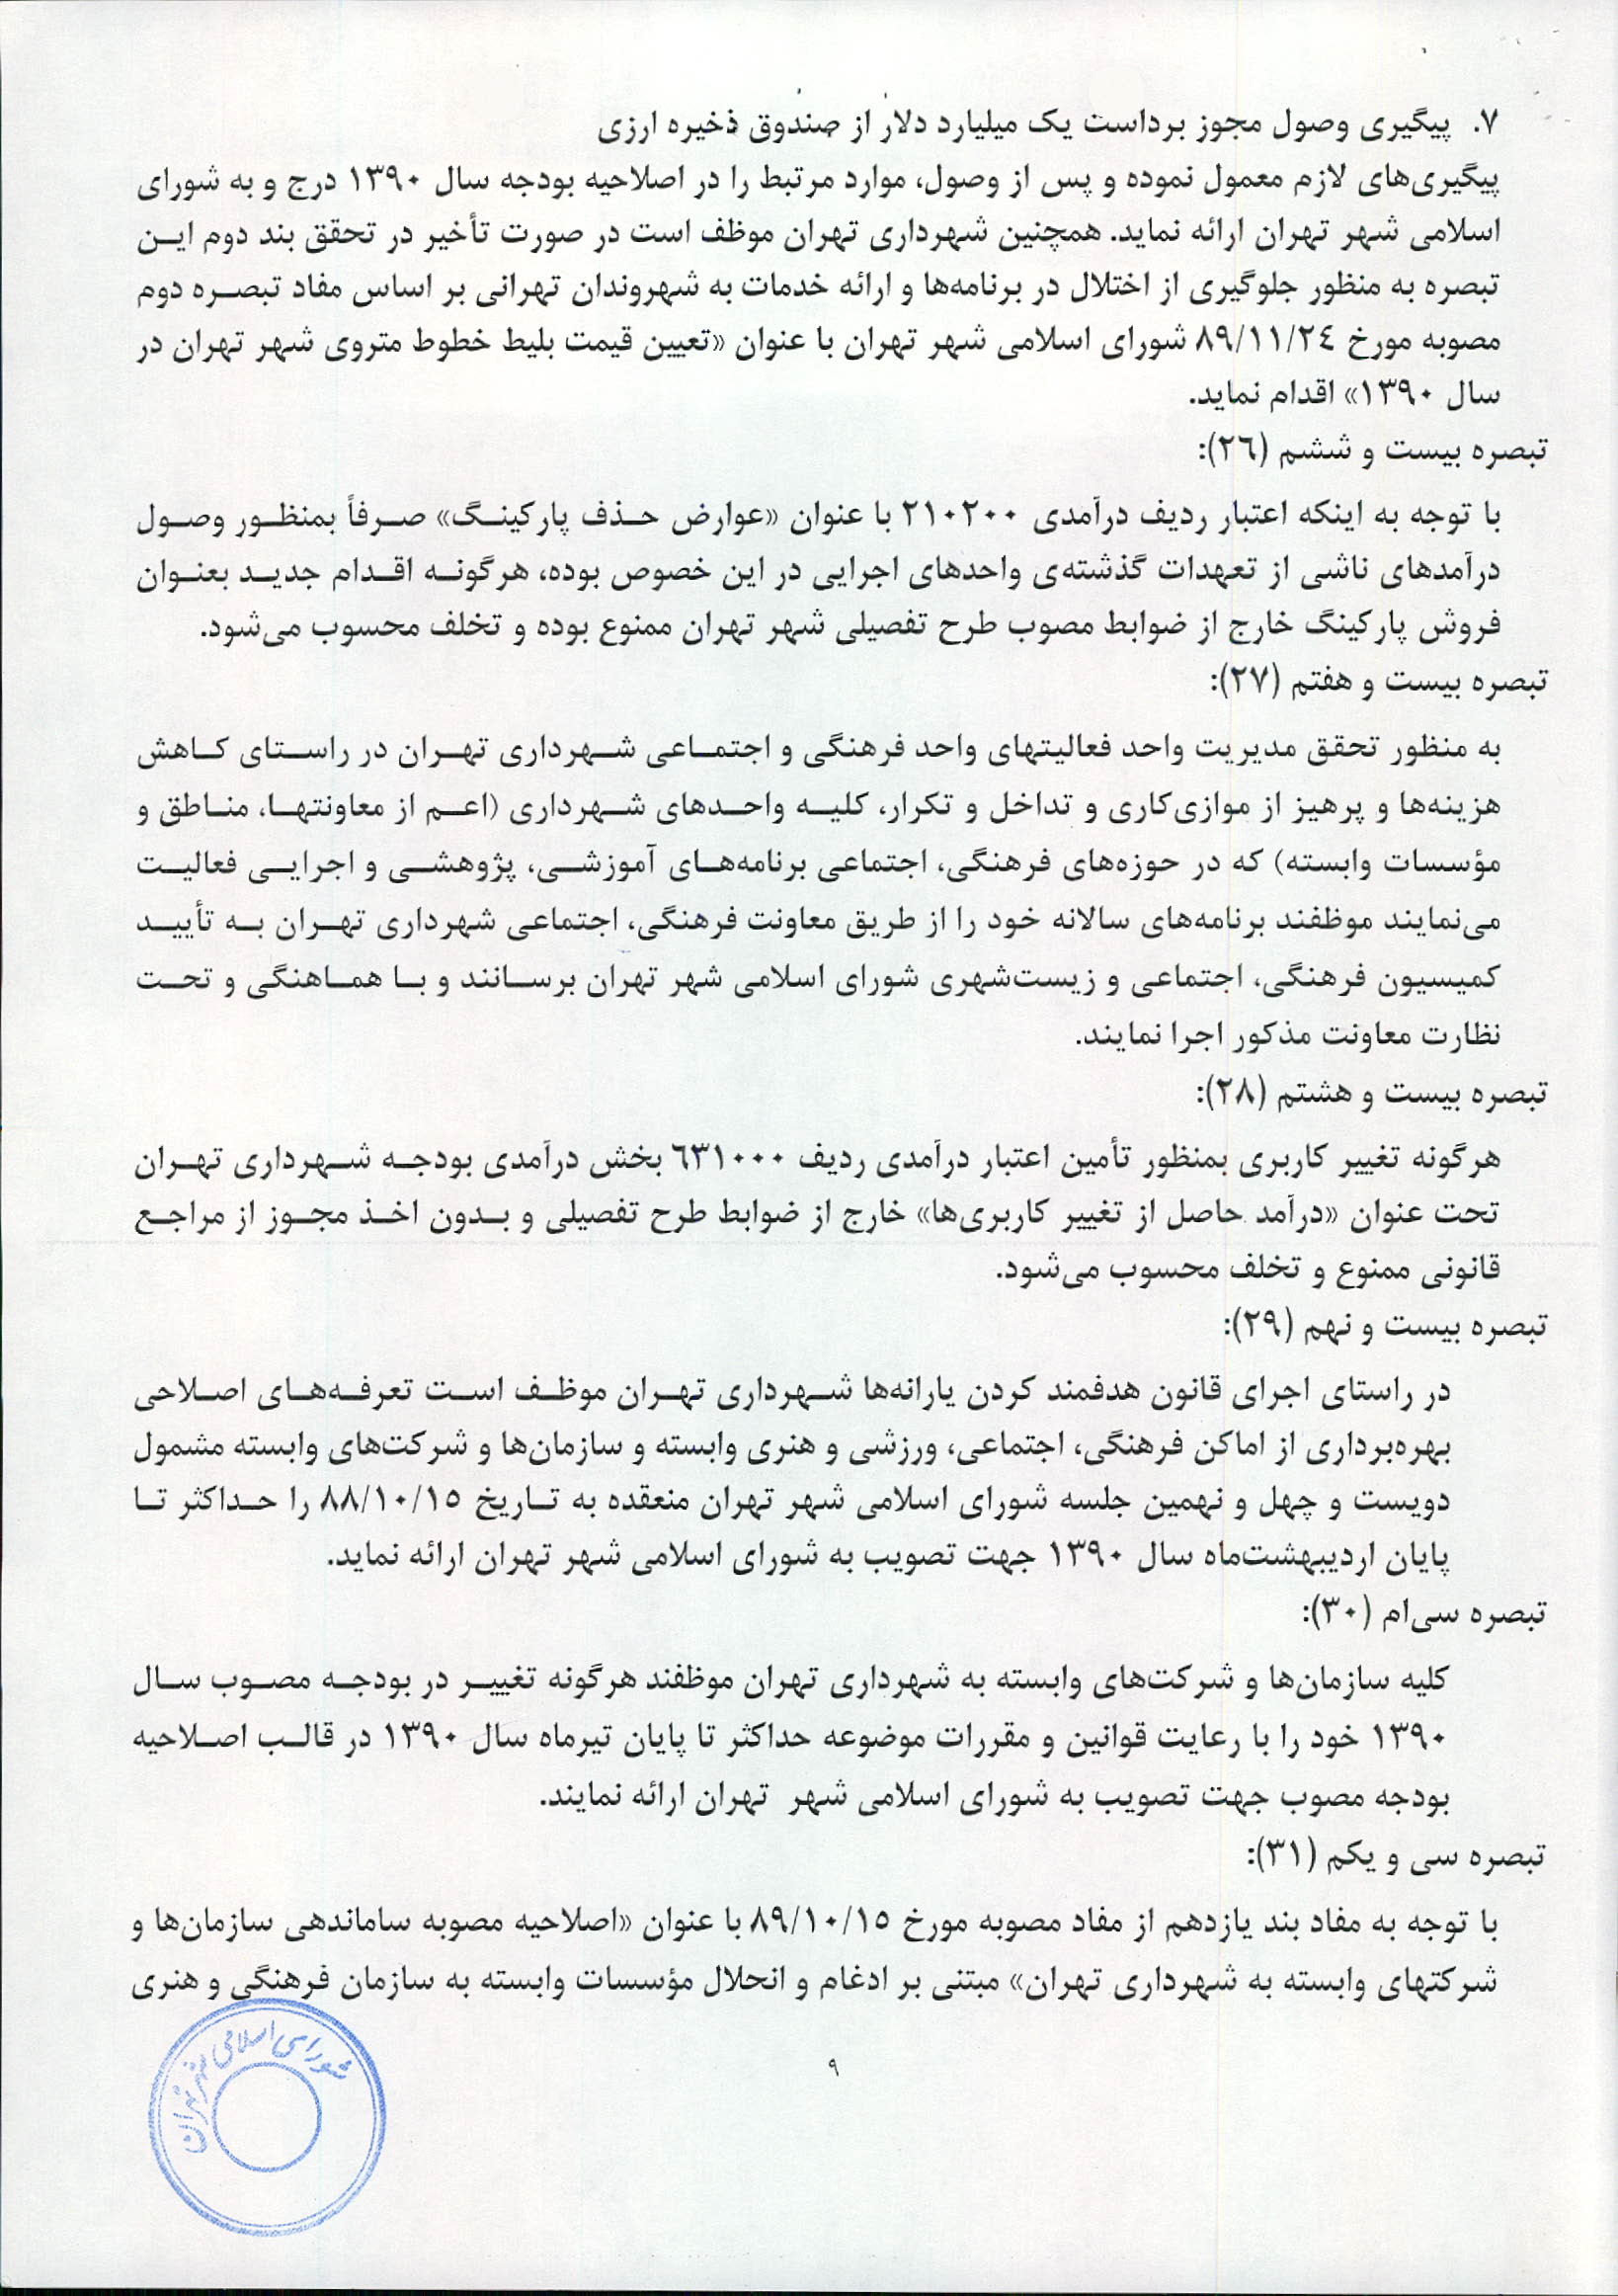 ۷. پیگیری وصول مجوز برداست یک میلیارد دلار از صندوق ذخیره ارزی
پیگیری‌های لازم معمول نموده و پس از وصول، موارد مرتبط را در اصلاحیه بودجه سال ۱۳۹۰ درج و به شورای
اسلامی شهر تهران ارائه نماید. همچنین شهرداری تهران موظف است در صورت تأخیر در تحقق بند دوم این
تبصره به منظور جلوگیری از اختلال در برنامه‌ها و ارائه خدمات به شهروندان تهرانی بر اساس مفاد تبصره دوم
مصوبه مورخ ۸۹/۱۱/۲٤ شورای اسلامی شهر تهران با عنوان «تعیین قیمت بلیط خطوط متروی شهر تهران در
سال ۱۳۹۰» اقدام نماید.
تبصره بیست و ششم (۲٦):
با توجه به اینکه اعتبار ردیف درآمدی ۲۱۰۲۰۰ با عنوان «عوارض حذف پارکینگ» صرفاً بمنظور وصول
درآمدهای ناشی از تعهدات گذشته‌ی واحدهای اجرایی در این خصوص بوده، هرگونه اقدام جدید بعنوان
فروش پارکینگ خارج از ضوابط مصوب طرح تفصیلی شهر تهران ممنوع بوده و تخلف محسوب می‌شود.
تبصره بیست و هفتم (۲۷):
به منظور تحقق مدیریت واحد فعالیتهای واحد فرهنگی و اجتماعی شهرداری تهران در راستای کاهش
هزینه‌ها و پرهیز از موازی‌کاری و تداخل و تکرار، کلیه واحدهای شهرداری (اعم از معاونتها، مناطق و
مؤسسات وابسته) که در حوزه‌های فرهنگی، اجتماعی برنامه‌های آموزشی، پژوهشی و اجرایی فعالیت
می‌نمایند موظفند برنامه‌های سالانه خود را از طریق معاونت فرهنگی، اجتماعی شهرداری تهران به تأیید
کمیسیون فرهنگی، اجتماعی و زیست‌شهری شورای اسلامی شهر تهران برسانند و با هماهنگی و تحت
نظارت معاونت مذکور اجرا نمایند.
تبصره بیست و هشتم (۲۸):
هرگونه تغییر کاربری بمنظور تأمین اعتبار درآمدی ردیف ٦۳۱۰۰۰ بخش درآمدی بودجه شهرداری تهران
تحت عنوان «درآمد حاصل از تغییر کاربری‌ها» خارج از ضوابط طرح تفصیلی و بدون اخذ مجوز از مراجع
قانونی ممنوع و تخلف محسوب می‌شود.
تبصره بیست و نهم (۲۹):
در راستای اجرای قانون هدفمند کردن یارانه‌ها شهرداری تهران موظف است تعرفه‌های اصلاحی
بهره‌برداری از اماکن فرهنگی، اجتماعی، ورزشی و هنری وابسته و سازمان‌ها و شرکت‌های وابسته مشمول
دویست و چهل و نهمین جلسه شورای اسلامی شهر تهران منعقده به تاریخ ۸۸/۱۰/۱٥ را حداکثر تا
پایان اردیبهشت‌ماه سال ۱۳۹۰ جهت تصویب به شورای اسلامی شهر تهران ارائه نماید.
تبصره سی‌ام (۳۰):
کلیه سازمان‌ها و شرکت‌های وابسته به شهرداری تهران موظفند هرگونه تغییر در بودجه مصوب سال
۱۳۹۰ خود را با رعایت قوانین و مقررات موضوعه حداکثر تا پایان تیرماه سال ۱۳۹۰ در قالب اصلاحیه
بودجه مصوب جهت تصویب به شورای اسلامی شهر تهران ارائه نمایند.
تبصره سی و یکم (۳۱):
با توجه به مفاد بند یازدهم از مفاد مصوبه مورخ ۸۹/۱۰/۱٥ با عنوان «اصلاحیه مصوبه ساماندهی سازمان‌ها و
شرکتهای وابسته به شهرداری تهران» مبتنی بر ادغام و انحلال مؤسسات وابسته به سازمان فرهنگی و هنری
شورای اسلامی شهر تهران
۹